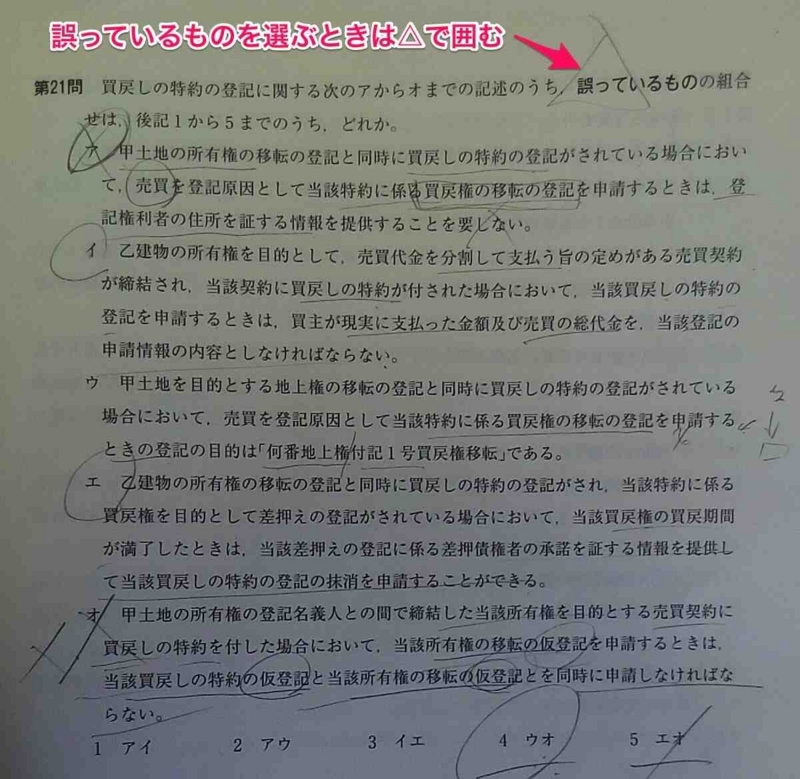 誤っているものを選ぶときは△で囲む
第21問 買戻しの特約の登記に関する次のアからオまでの記述のうち，誤っているものの組合
せは，後記1から5までのうち，どれか。
ア 甲土地の所有権の移転の登記と同時に買戻しの特約の登記がされている場合におい
て，売買を登記原因として当該特約に係る買戻権の移転の登記を申請するときは，登
記権利者の住所を証する情報を提供することを要しない。
イ 乙建物の所有権を目的として，売買代金を分割して支払う旨の定めがある売買契約
が締結され，当該契約に買戻しの特約が付された場合において，当該買戻しの特約の
登記を申請するときは，買主が現実に支払った金額及び売買の総代金を，当該登記の
申請情報の内容としなければならない。
ウ 甲土地を目的とする地上権の移転の登記と同時に買戻しの特約の登記がされている
場合において，売買を登記原因として当該特約に係る買戻権の移転の登記を申請する
ときの登記の目的は「何番地上権付記1号買戻権移転」である。
エ 乙建物の所有権の移転の登記と同時に買戻しの特約の登記がされ，当該特約に係る
買戻権を目的として差押えの登記がされている場合において，当該買戻権の買戻期間
が満了したときは，当該差押えの登記に係る差押債権者の承諾を証する情報を提供し
て当該買戻しの特約の登記の抹消を申請することができる。
オ 甲土地の所有権の登記名義人との間で締結した当該所有権を目的とする売買契約に
買戻しの特約を付した場合において，当該所有権の移転の仮登記を申請するときは，
当該買戻しの特約の仮登記と当該所有権の移転の仮登記とを同時に申請しなければな
らない。
1 アイ 2 アウ 3 イエ 4 ウオ 5 エオ